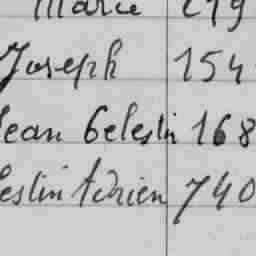 Marie 219
Joseph 154
Jean Celestin 168
estin Adrien 740